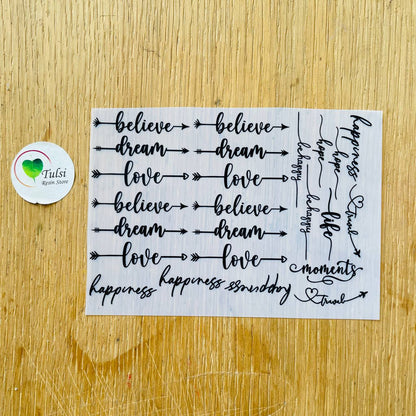 Tulsi
Resin Store
believe believe
dream dream
love love
believe believe
dream dream
love love
happiness happiness happiness
be happy be happy
hope hope
life
happiness
travel
moments
travel